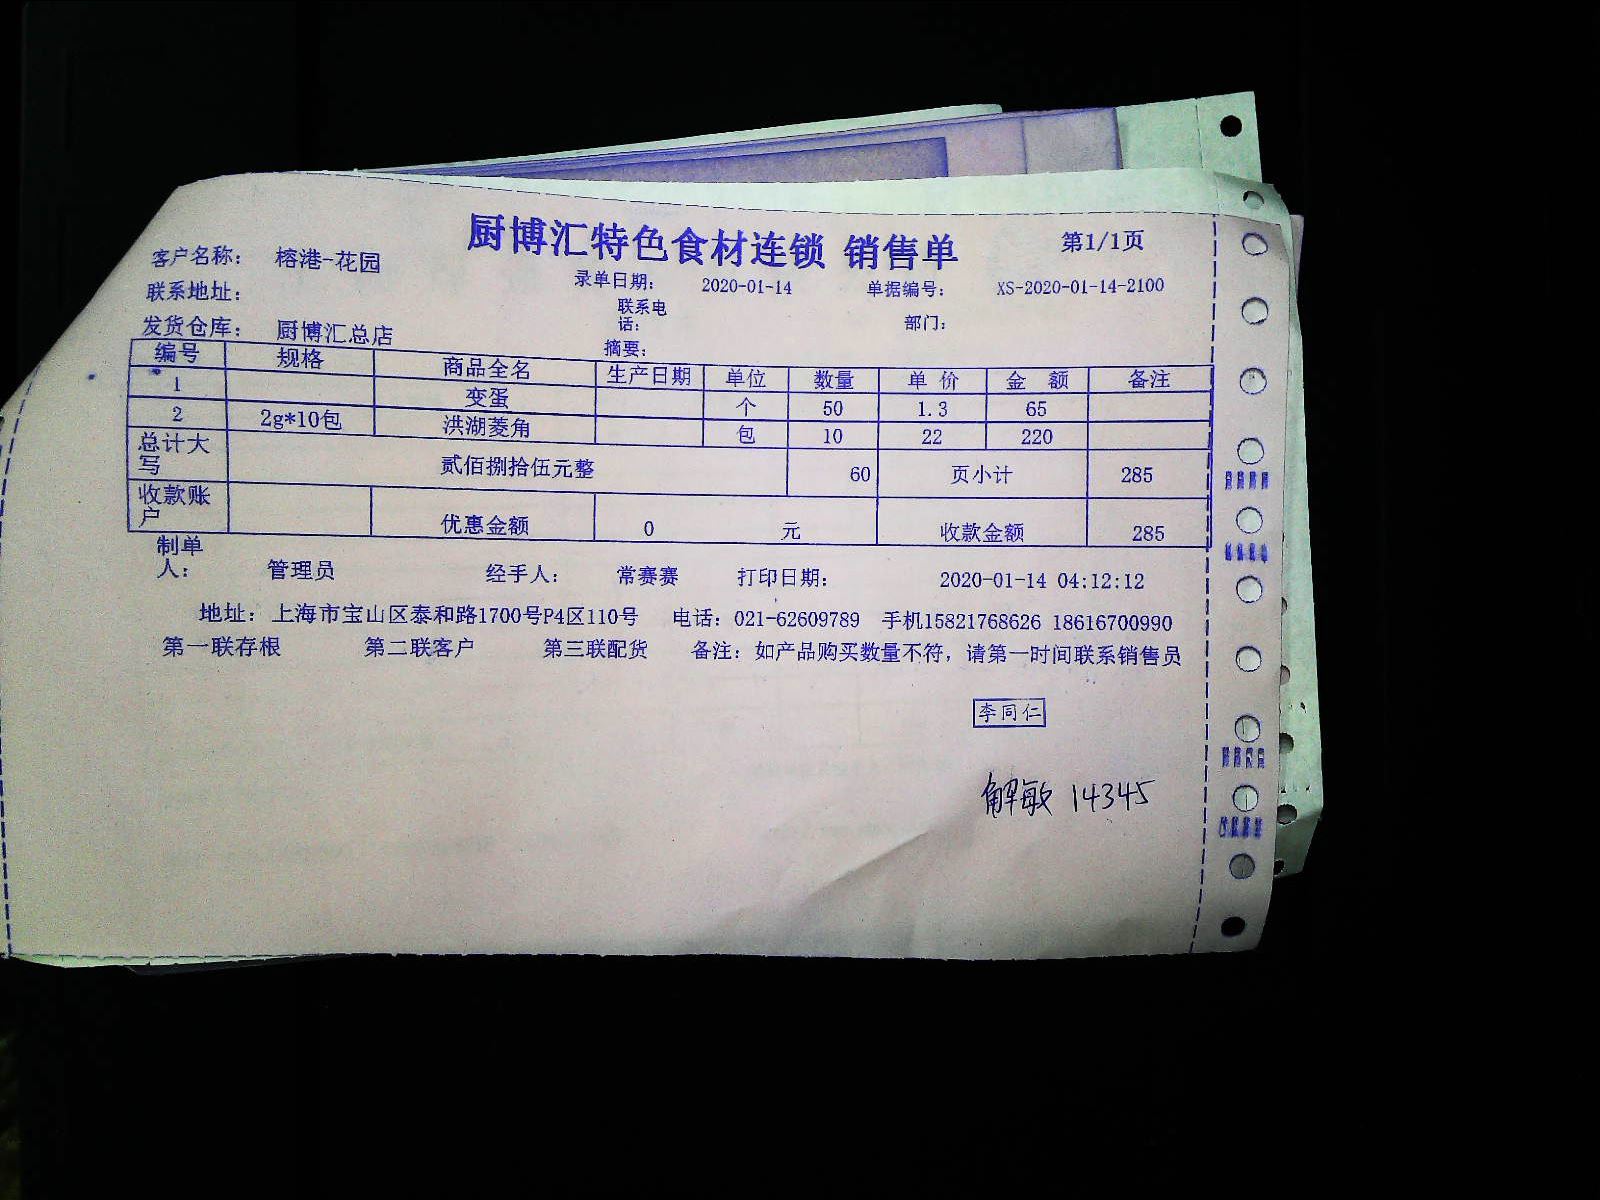 厨博汇特色食材连锁 销售单 第1/1页
客户名称： 榕港-花园
录单日期： 2020-01-14 单据编号： XS-2020-01-14-2100
联系地址： 联系电话： 部门：
发货仓库： 厨博汇总店 摘要：
编号 规格 商品全名 生产日期 单位 数量 单价 金额 备注
1 变蛋 个 50 1.3 65
2 2g*10包 洪湖菱角 包 10 22 220
总计大写 贰佰捌拾伍元整 60 页小计 285
收款账户 优惠金额 0 元 收款金额 285
制单人： 管理员 经手人： 常赛赛 打印日期： 2020-01-14 04:12:12
地址：上海市宝山区泰和路1700号P4区110号 电话：021-62609789 手机15821768626 18616700990
第一联存根 第二联客户 第三联配货 备注：如产品购买数量不符，请第一时间联系销售员
李同仁
解敏 14345